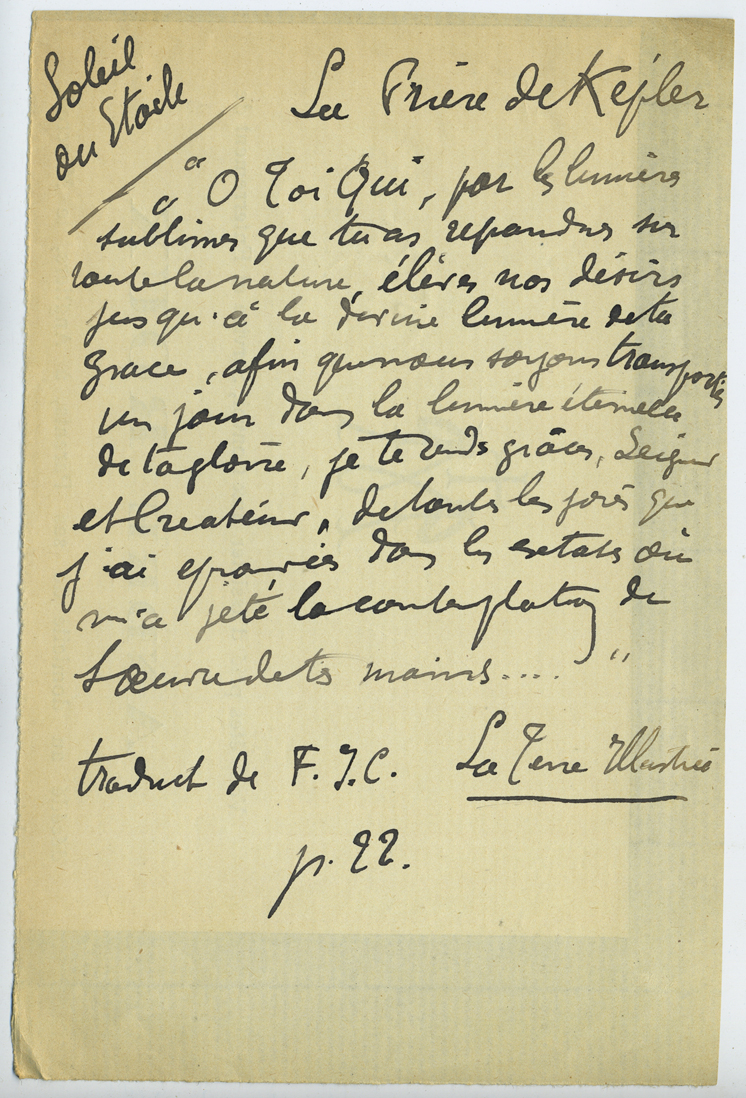 Soleil
ou Etoile
La Prière de Képler
" O Toi Qui, par les lumières
sublimes que tu as repandues sur
toute la nature, élèves nos désirs
jusqu'à la divine lumière de ta
grace, afin que nous soyons transportés
un jour dans la lumière éternelle
de ta gloire, je te rends grâces, Seigneur
et Createur, de toutes les joies que
j'ai eprouvées dans les extases où
m'a jeté la contemplation de
l'œuvre de tes mains.... "
traduct de F. J. C. La Terre Illustrée
p. 22.